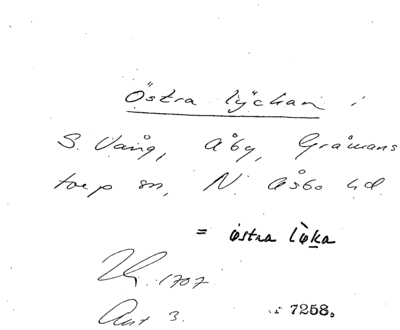 Östra lyckan i
S. Vång, Åby, Gråmans
torp sn, N. Åsbo hd.
= östra lo̱ka
1707
Akt 3.
7258.